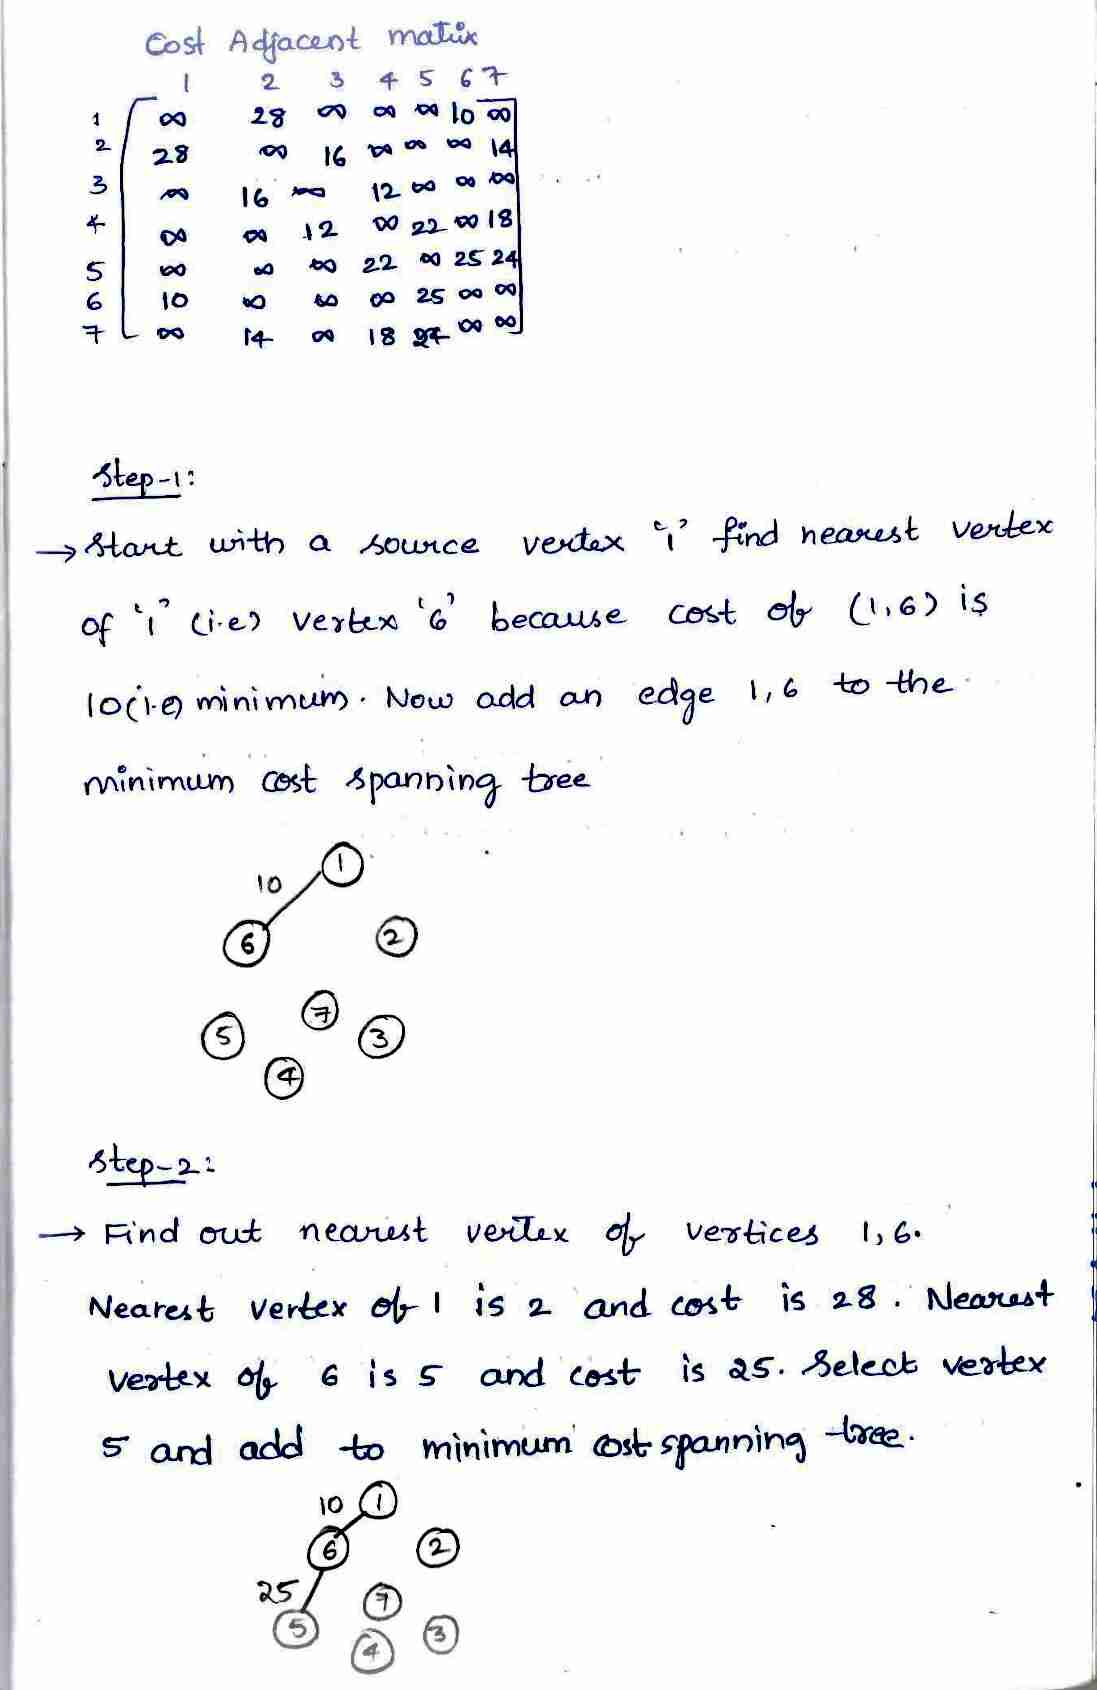 Cost Adjacent matrix
1 2 3 4 5 6 7
1 ∞ 28 ∞ ∞ ∞ 10 ∞
2 28 ∞ 16 ∞ ∞ ∞ 14
3 ∞ 16 ∞ 12 ∞ ∞ ∞
4 ∞ ∞ 12 ∞ 22 ∞ 18
5 ∞ ∞ ∞ 22 ∞ 25 24
6 10 ∞ ∞ ∞ 25 ∞ ∞
7 ∞ 14 ∞ 18 24 ∞ ∞
Step-1:
→ Start with a source vertex '1' find nearest vertex
of '1' (i.e) vertex '6' because cost of (1,6) is
10(i.e) minimum. Now add an edge 1,6 to the
minimum cost spanning tree
1
10
6 2
7
5 3
4
Step-2:
→ Find out nearest vertex of vertices 1,6.
Nearest vertex of 1 is 2 and cost is 28. Nearest
vertex of 6 is 5 and cost is 25. Select vertex
5 and add to minimum cost spanning tree.
10 1
6 2
25 7
5 3
4